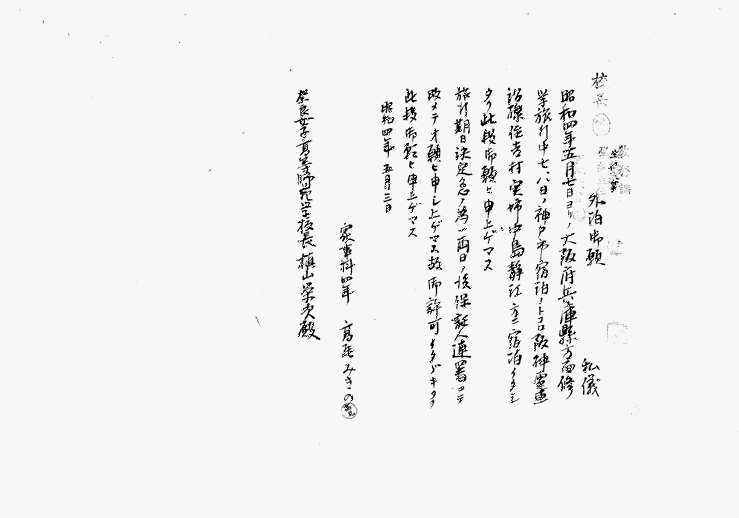 外泊御願
私儀
昭和四年五月七日ヨリノ大阪府兵庫縣方面修
学旅行中七、八日ノ神戸市宿泊ノトコロ阪神電車
沿線住吉村実姉中島静江方ニ宿泊イタシ
タク此段御願ヒ申上ゲマス
旅行期日決定急ノ為メ両日ノ後保証人連署ニテ
改メテオ願ヒ申シ上ゲマス故御許可イタダキタク
此段御願ヒ申上ゲマス
昭和四年五月三日
家事科四年 みきの
奈良女子高等師範学校長 槇山栄次殿